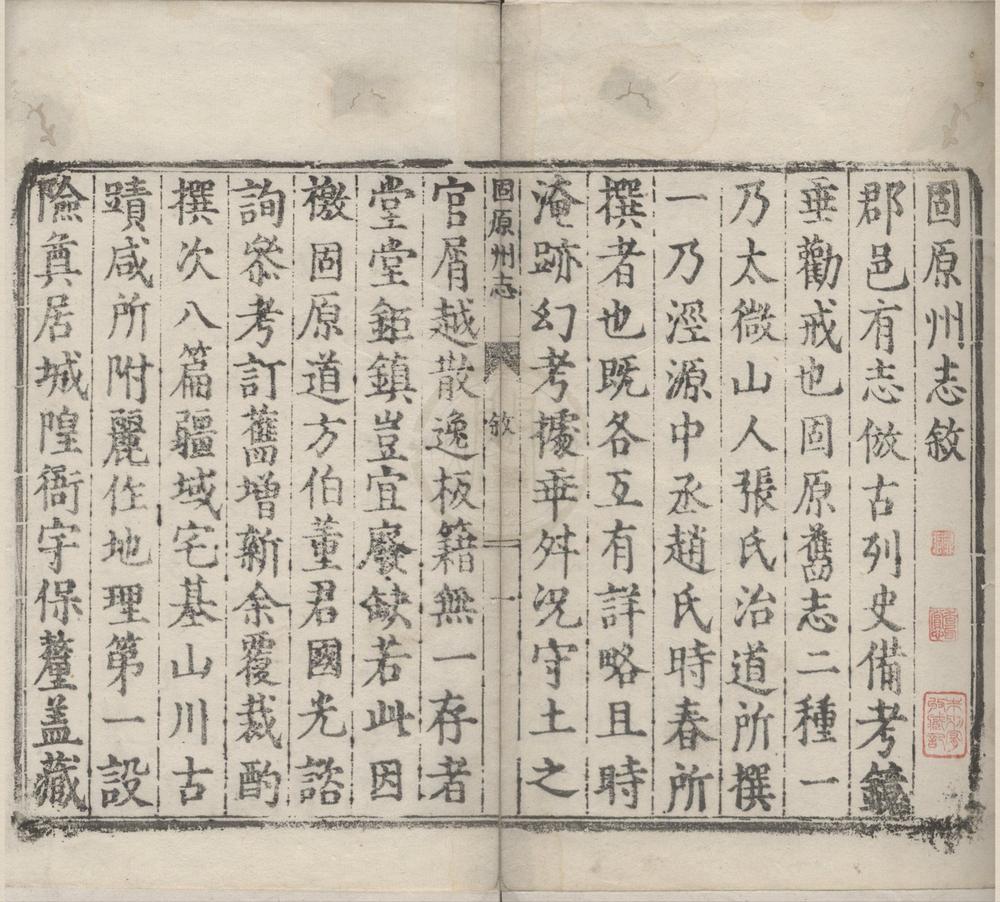 固原州志敘
郡邑有志倣古列史備考鏡
垂勸戒也固原舊志二種一
乃太微山人張氏治道所撰
一乃涇源中丞趙氏時春所
撰者也既各互有詳略且時
淹跡幻考據乖舛况守土之
固原州志 敘 一
官屑越散逸板籍無一存者
堂堂鉅鎮豈宜廢缺若此因
檄固原道方伯董君國光諮
詢叅考訂舊增新余覆裁酌
撰次八篇疆域宅基山川古
蹟咸所附麗作地理第一設
險奠居城隍衙宇保釐盖藏